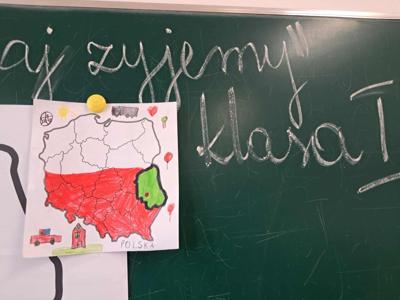 aj żyjemy"
klasa I
POLSKA